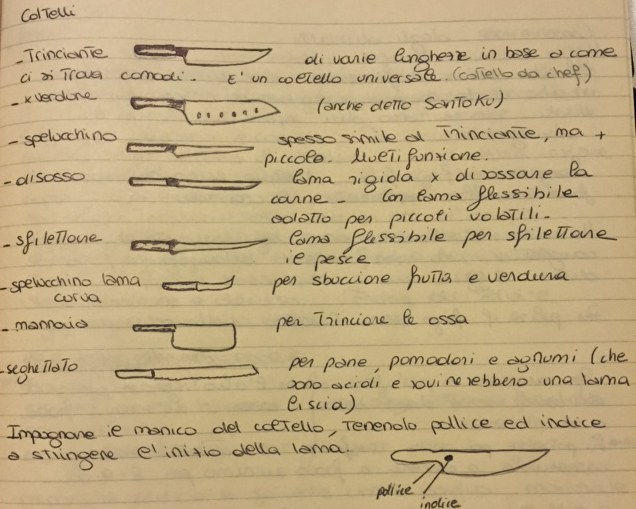 Coltelli
- Trinciante di varie lunghezze in base a come
ci si trova comodi - E' un coltello universale. (coltello da chef)
- x verdure (anche detto Santoku)
- spelucchino spesso simile al Trinciante, ma +
piccolo. Multifunzione.
- disosso lama rigida x disossare la
carne - Con lama flessibile
adatto per piccoli volatili -
- sfilettare lama flessibile per sfilettare
il pesce
- spelucchino lama per sbucciare frutta e verdura
curva
- mannaia per Trinciare le ossa
- seghettato per pane, pomodori e agrumi (che
sono acidi e rovinerebbero una lama
liscia)
Impugnare il manico del coltello, Tenendolo pollice ed indice
a stringere l'inizio della lama.
pollice
indice